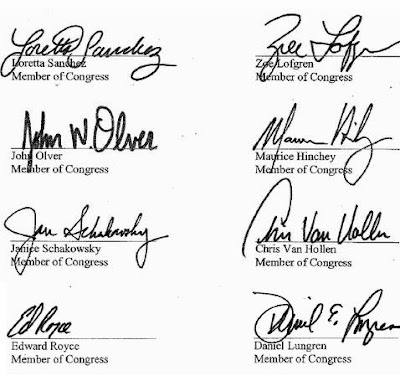 Loretta Sanchez
Loretta Sanchez
Member of Congress
Zoe Lofgren
Zoe Lofgren
Member of Congress
John W. Olver
John Olver
Member of Congress
Maurice Hinchey
Member of Congress
Jan Schakowsky
Janice Schakowsky
Member of Congress
Chris Van Hollen
Chris Van Hollen
Member of Congress
Ed Royce
Edward Royce
Member of Congress
Daniel E. Lungren
Daniel Lungren
Member of Congress